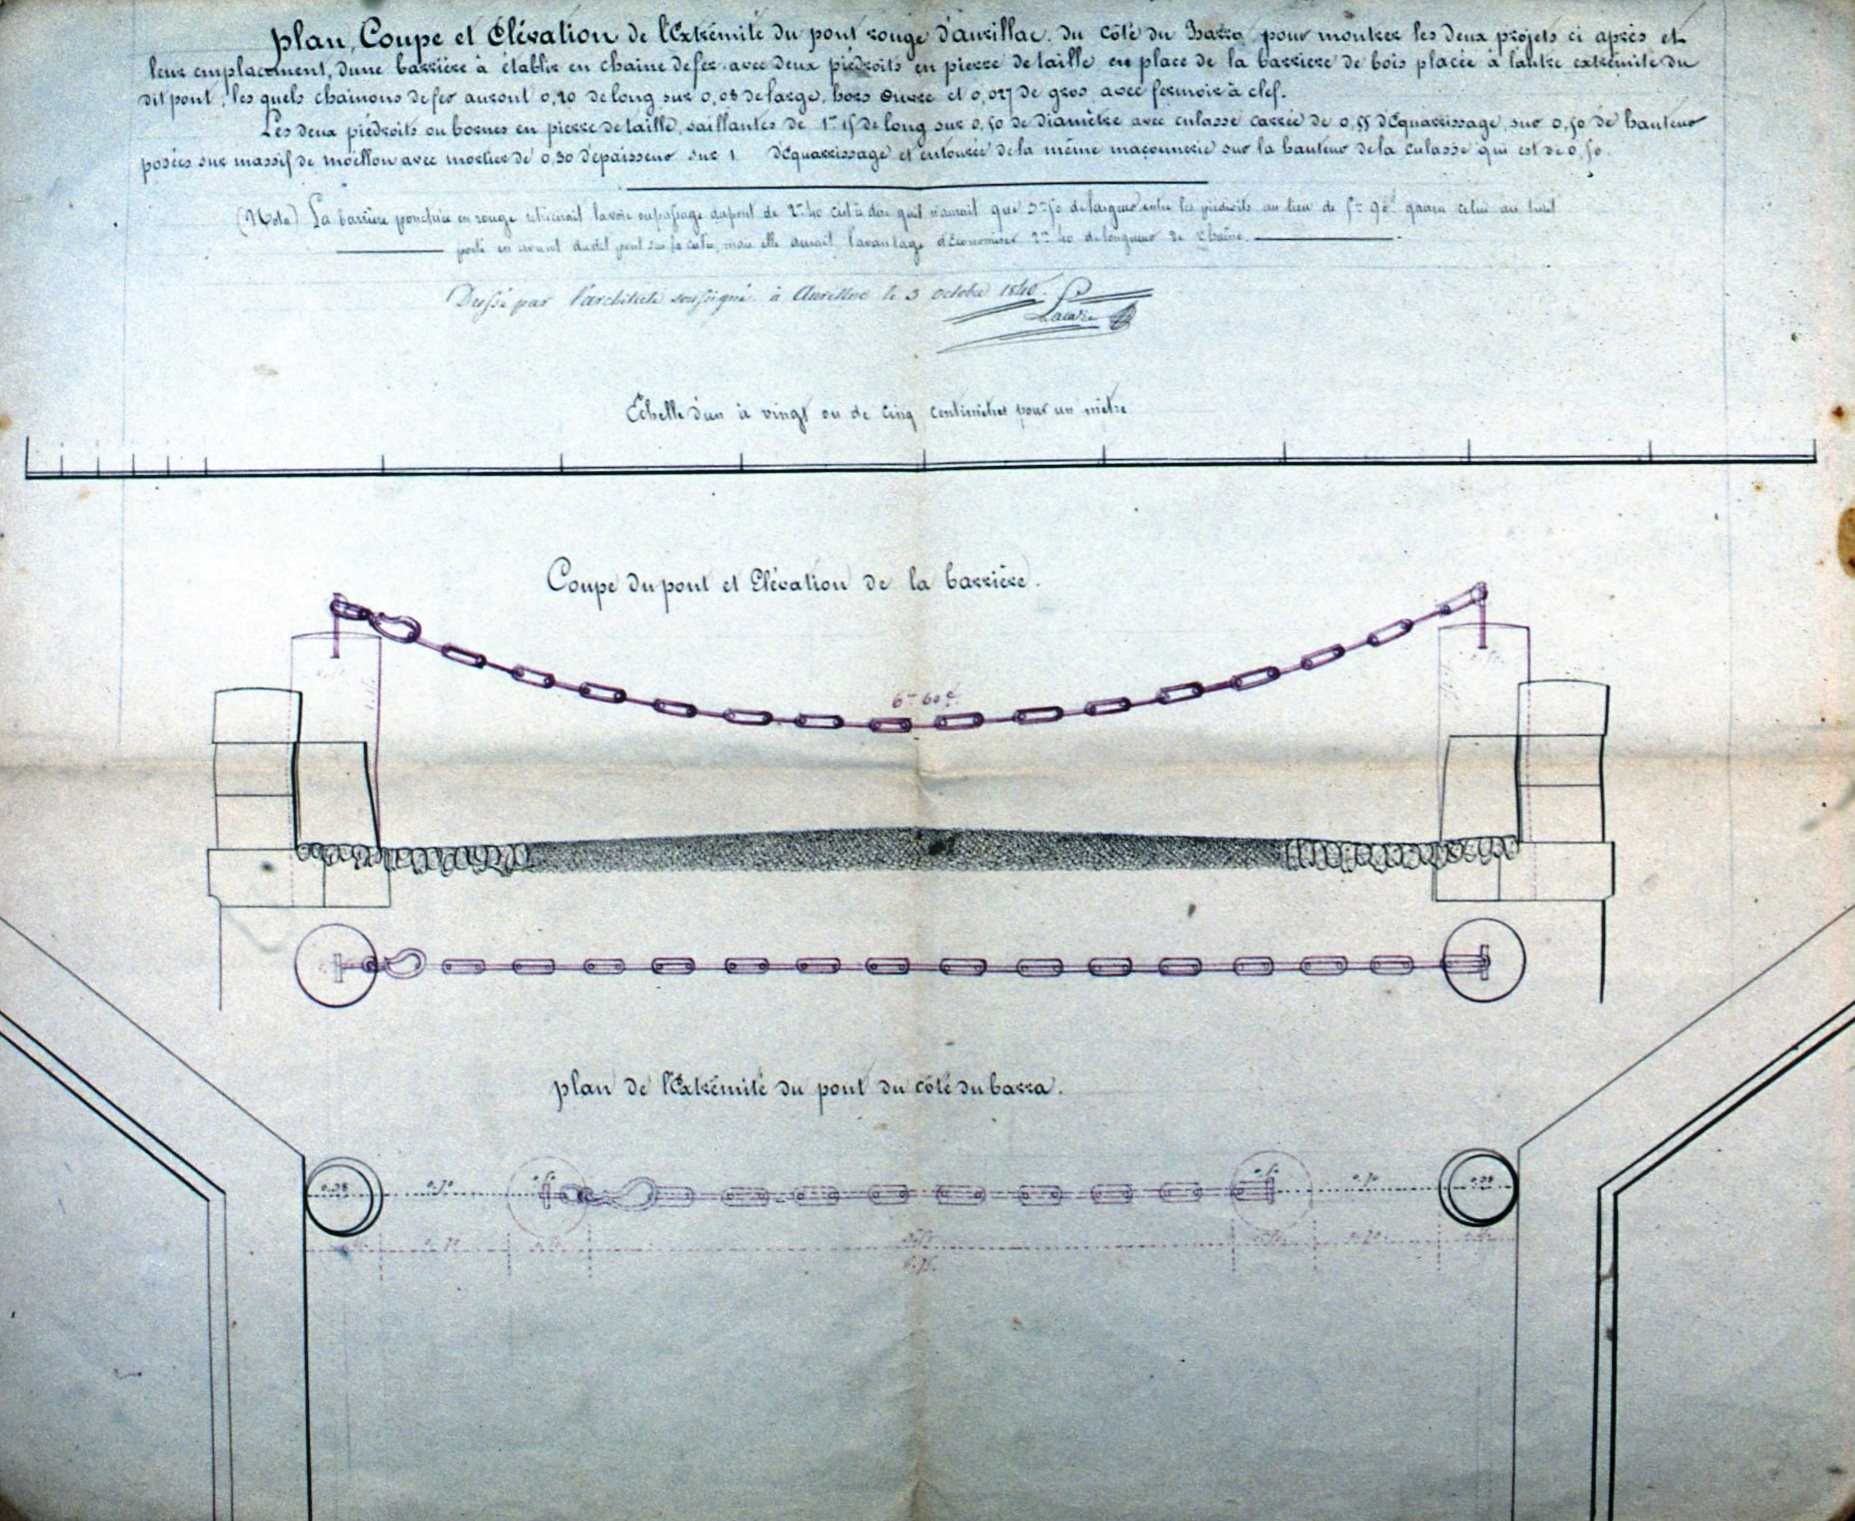 Plan, Coupe et Elévation de l'Extrémité du pont rouge d'aurillac, du côté du Barra, pour montrer les deux projets ci après et
leur emplacement, dune barrière à établir en chaine de fer, avec deux piédroits en pierre de taille, en place de la barriere de bois placée à lautre extrémité du
dit pont; les quels chainons de fer auront 0,20 de long sur 0,08 de large, hors œuvre et 0,027 de gros, avec fermoir à clef.
Les deux piédroits ou bornes en pierre de taille, saillantes de 1m 15 de long sur 0,50 de diamètre avec culasse carrée de 0,55 d'Equarrissage, sur 0,50 de hauteur
posées sur massif de moëllon avec mortier de 0,30 d'epaisseur sur 1 d'Equarrissage et entourée de la même maçonnerie sur la hauteur de la culasse qui est de 0,50.
(Nota) La barrière ponctuée en rouge rétrécirait la voie ou passage du pont de 2m 40 c'est à dire qu'il n'aurait que 3m 50 de largeur entre les piedroits au lieu de 5m 90c
porté en avant dudit pont mais elle aurait l'avantage d'économiser 2m 40 de longueur de chaîne.
Dressé par l'architecte soussigné à Aurillac le 3 octobre 1840.
Echelle d'un à vingt ou de cinq centimètres pour un mètre
Coupe du pont et Elévation de la barrière.
6m 60c
plan de l'Extrémité du pont du côté du barra.
0.38 0.70 0.70 0.38